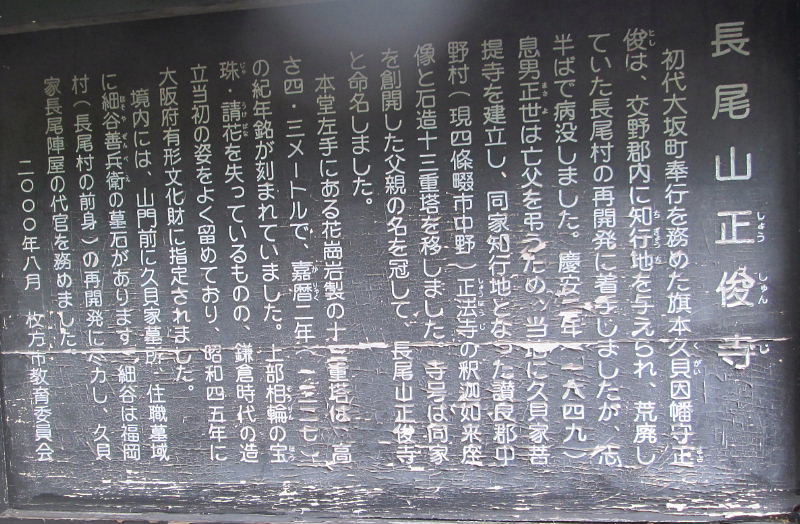 長尾山正俊寺
しょうしゅんじ
初代大坂町奉行を務めた旗本久貝因幡守正
くがい
まさ
俊は、交野郡内に知行地を与えられ、荒廃し
とし
ちぎょうち
ていた長尾村の再開発に着手しましたが、志
半ばで病没しました。慶安二年(一六四九)
息男正世は亡父を弔うため、当地に久貝家菩
まさよ
提寺を建立し、同家知行地となった讃良郡中
野村(現四條畷市中野)正法寺の釈迦如来座
しょうほうじ
像と石造十三重塔を移しました。寺号は同家
を創開した父親の名を冠して、長尾山正俊寺
と命名しました。
本堂左手にある花崗岩製の十三重塔は、高
さ四・三メートルで、嘉暦二年(一三二七)
かりゃく
の紀年銘が刻まれていました。上部相輪の宝
そうりん
ほう
珠・請花を失っているものの、鎌倉時代の造
じゅ
うけばな
立当初の姿をよく留めており、昭和四五年に
大阪府有形文化財に指定されました。
境内には、山門前に久貝家墓所、住職墓域
に細谷善兵衛の墓石があります。細谷は福岡
ほそやぜんべえ
村(長尾村の前身)の再開発に尽力し、久貝
家長尾陣屋の代官を務めました。
二〇〇〇年八月 枚方市教育委員会